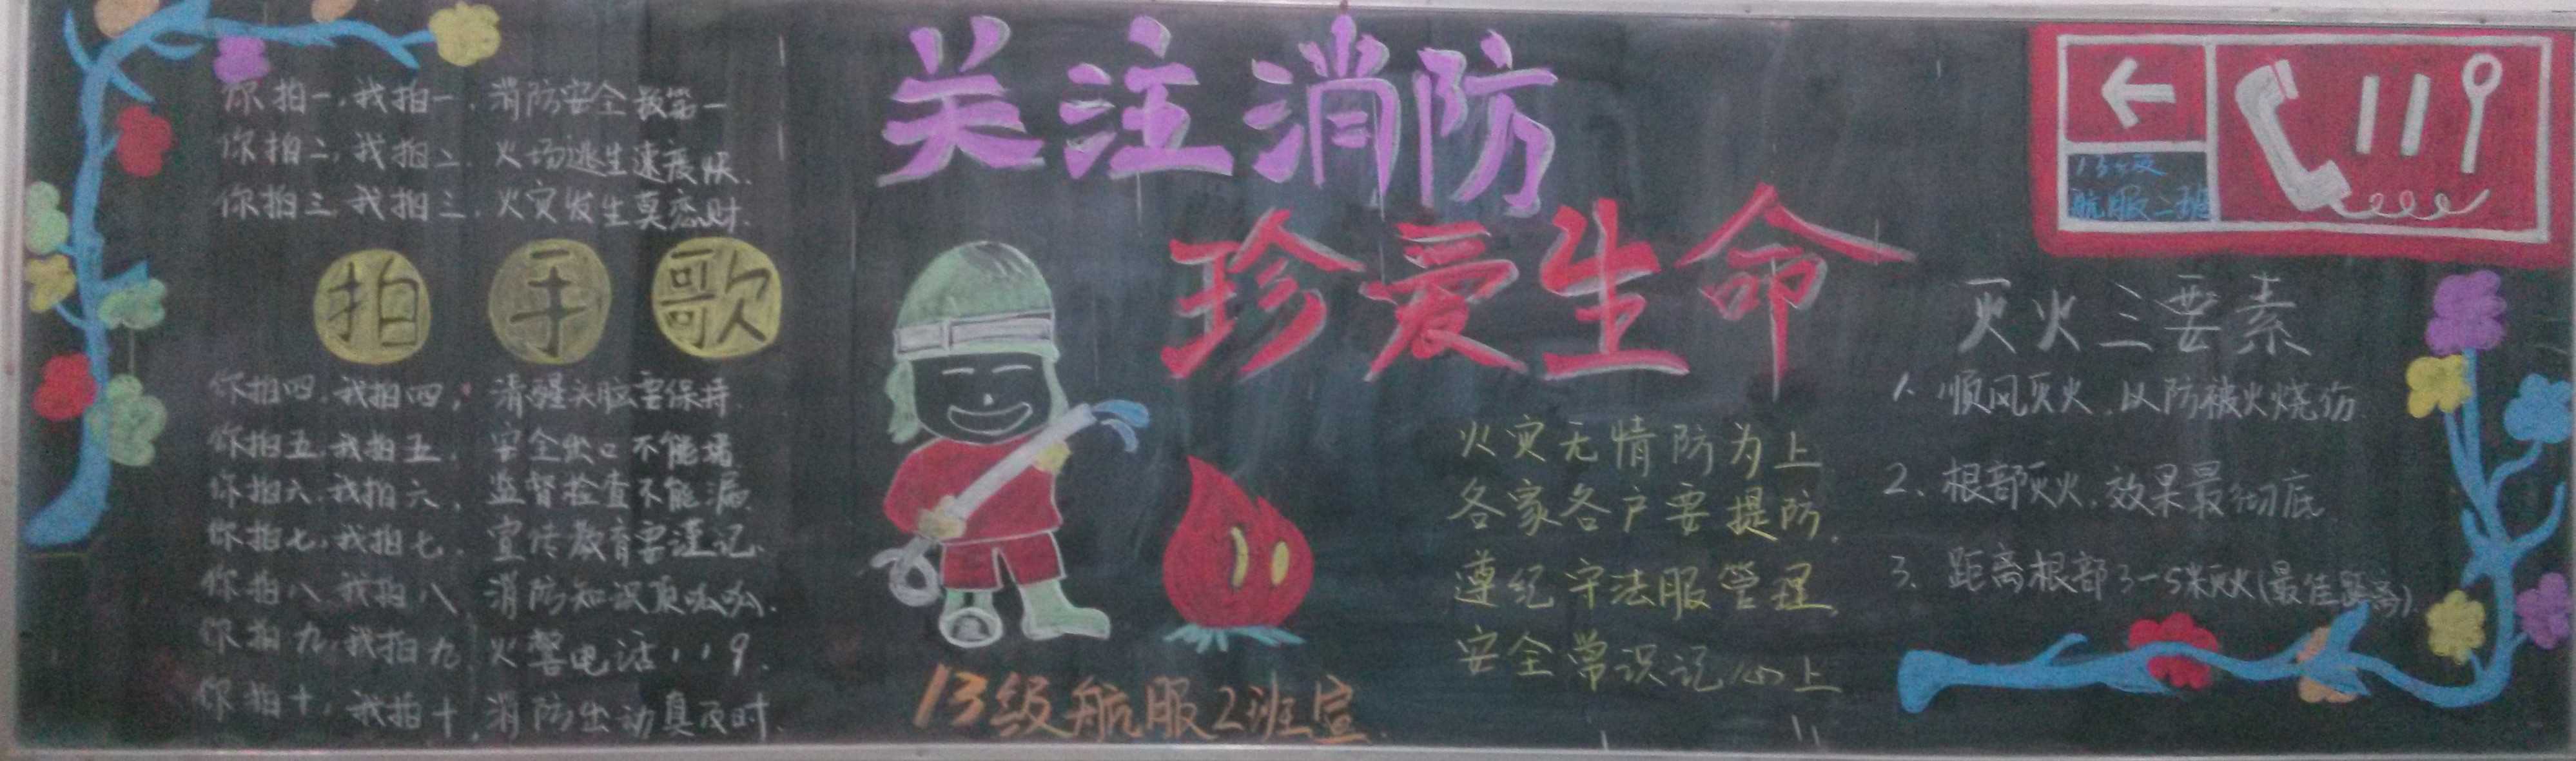 你拍一,我拍一,消防安全数第一
你拍二,我拍二,火场逃生速度快.
你拍三,我拍三,火灾发生莫恋财.
拍手歌
你拍四,我拍四,清醒头脑要保持.
你拍五,我拍五,安全出口不能堵
你拍六,我拍六,监督检查不能漏.
你拍七,我拍七,宣传教育要谨记.
你拍八,我拍八,消防知识顶呱呱.
你拍九,我拍九,火警电话119.
你拍十,我拍十,消防出动真及时.
关注消防
珍爱生命
13级航服2班宣.
火灾无情防为上
各家各户要提防.
遵纪守法服管理,
安全常识记心上
119
13级
航服二班
灭火三要素
1、顺风灭火,以防被火烧伤
2、根部灭火,效果最彻底
3、距离根部3-5米灭火(最佳距离).